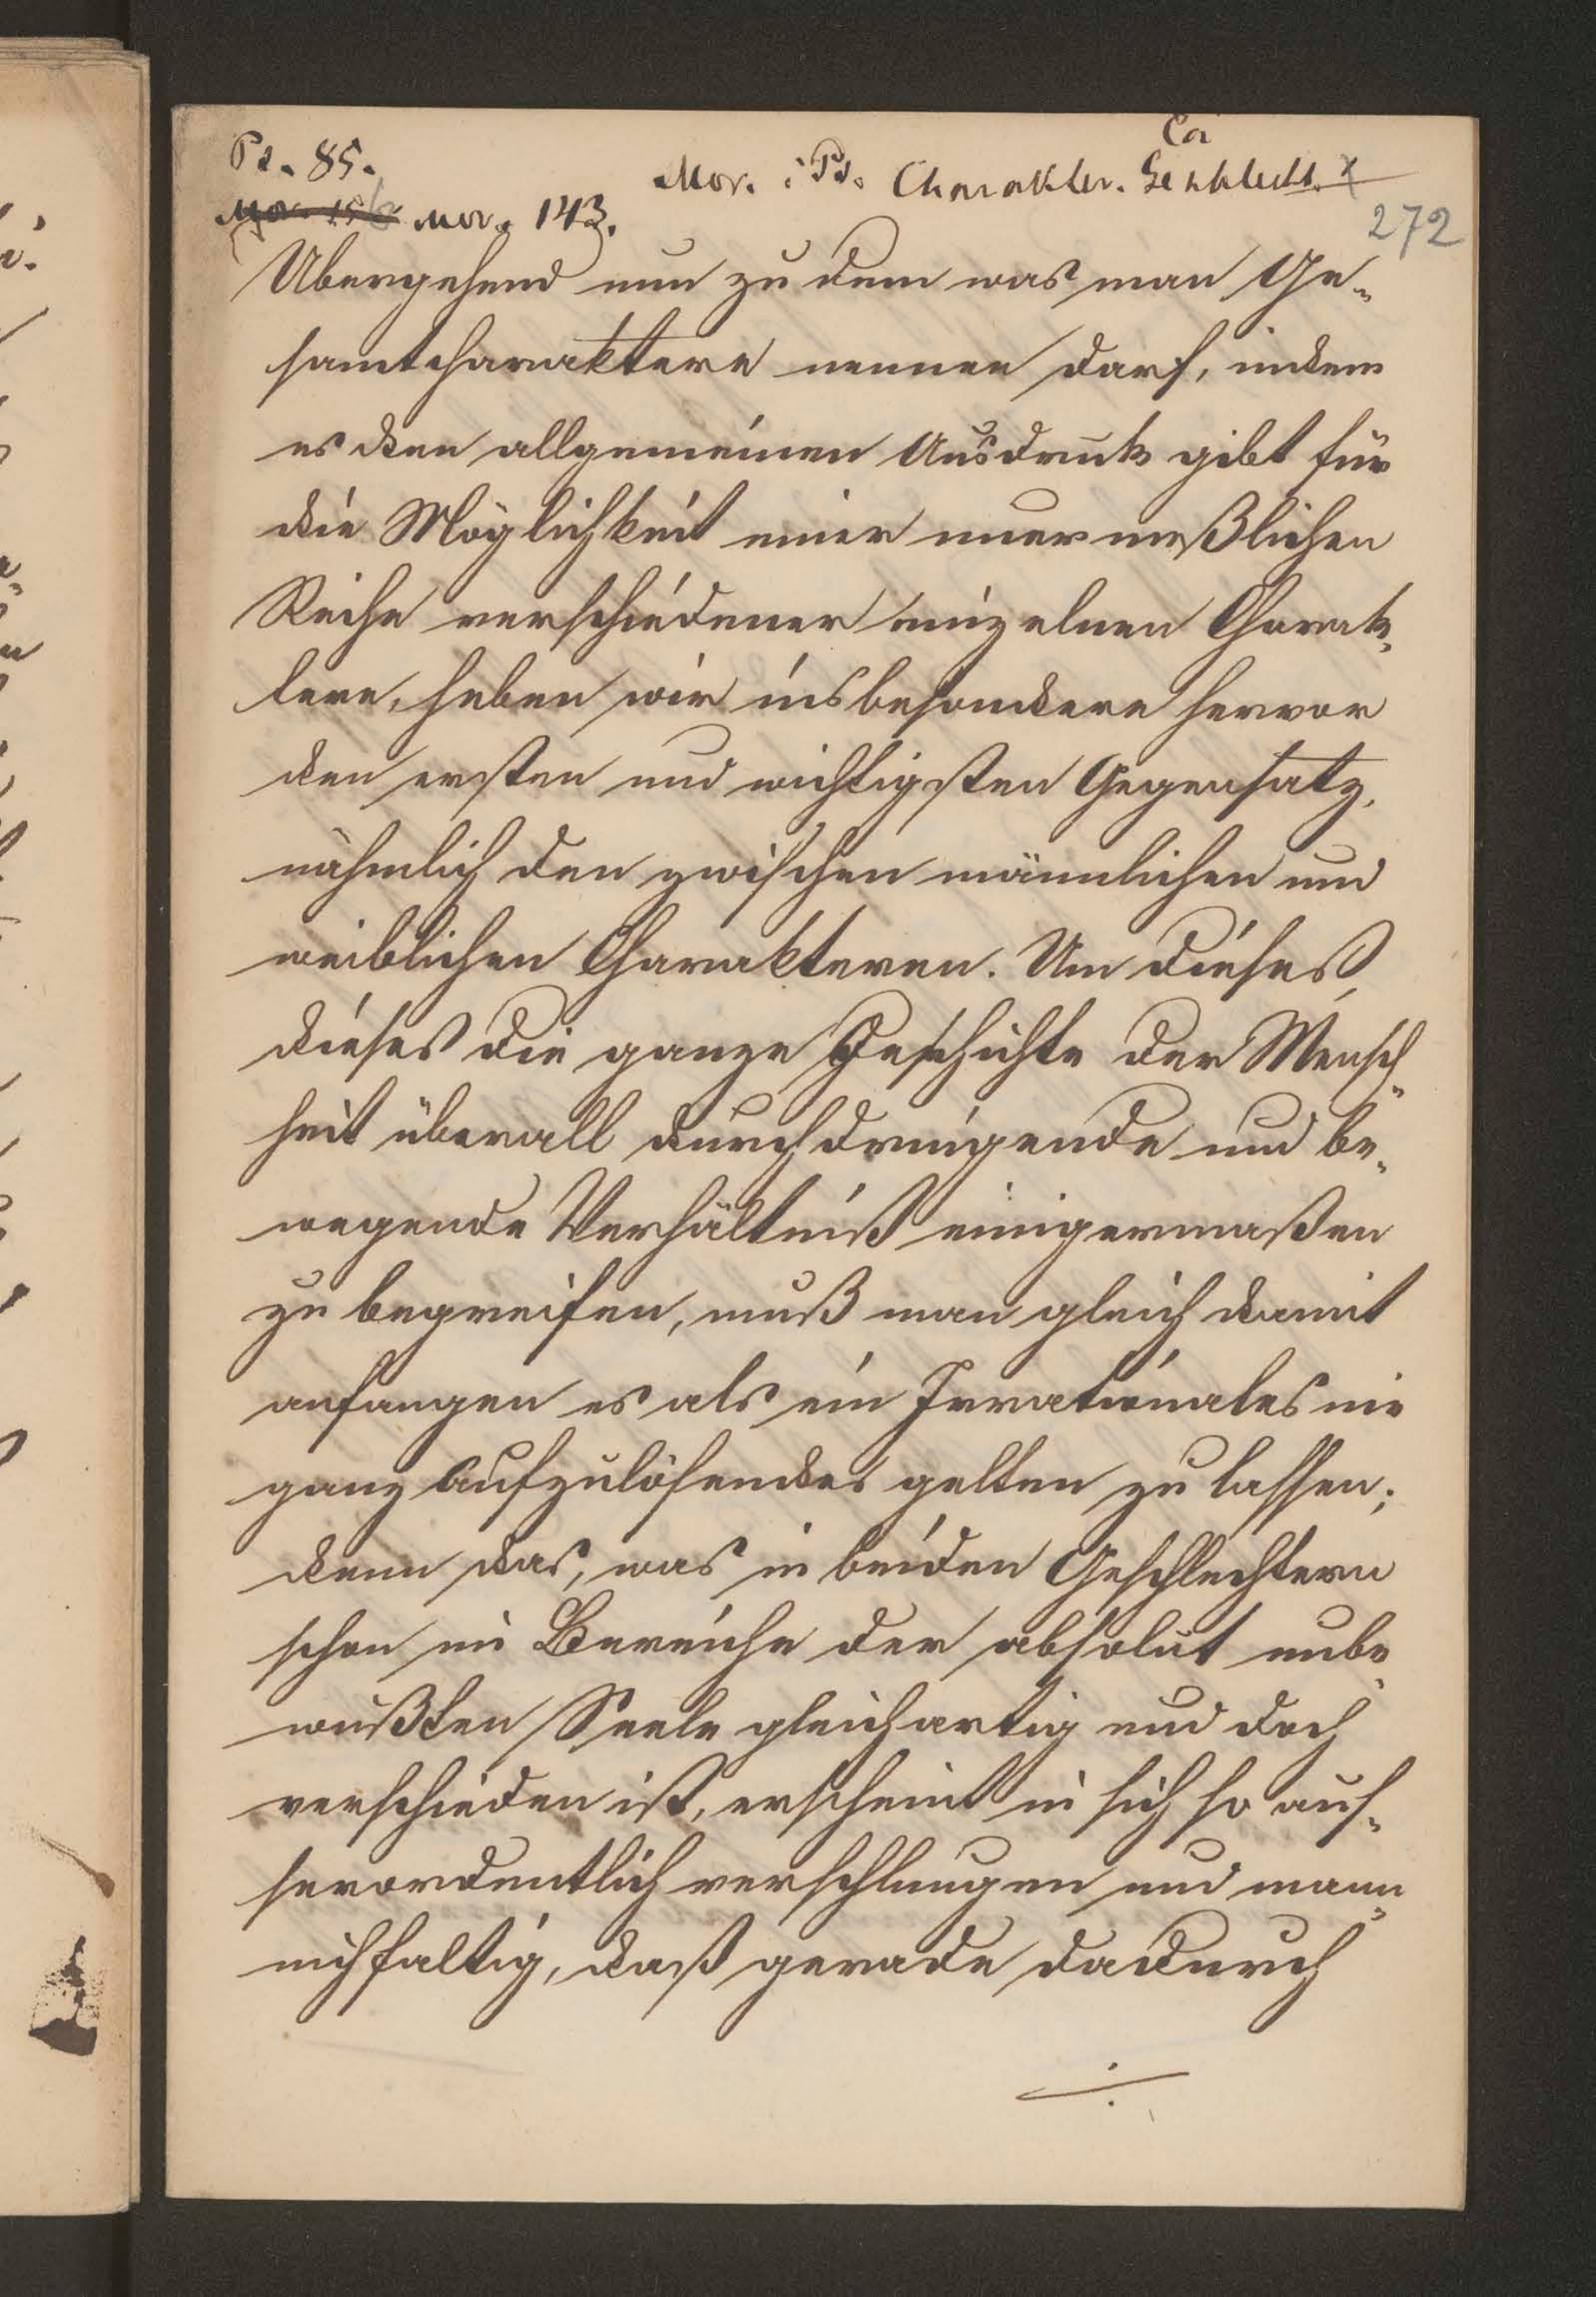 Ca
Ps. 85. Mor. : Ps. Charakter. Geschlecht. x
Mor. 143. 272
Übergehend nun zu dem was man Ge-
samtcharaktere nennen darf, indem
es den allgemeinen Ausdruck gibt für
die Möglichkeit einer unermeßlichen
Reihe verschiedener einzelnen Charak-
tere, heben wir insbesondere hervor
den ersten und wichtigsten Gegensatz,
nähmlich den zwischen männlichen und
weiblichen Charakteren. Um dieses,
dieses die ganze Geschichte der Mensch-
heit überall durchdringende und be-
wegende Verhältniß einigermaßen
zu begreifen, muß man gleich damit
anfangen es als ein Irrationales nie
ganz aufzulösendes gelten zu lassen;
denn das, was in beiden Geschlechtern
schon im Bereiche der absolut unbe-
wußten Seele gleichartig und doch
verschieden ist, erscheint in sich so aus-
serordentlich verschlungen und man-
nichfaltig, daß gerade dadurch